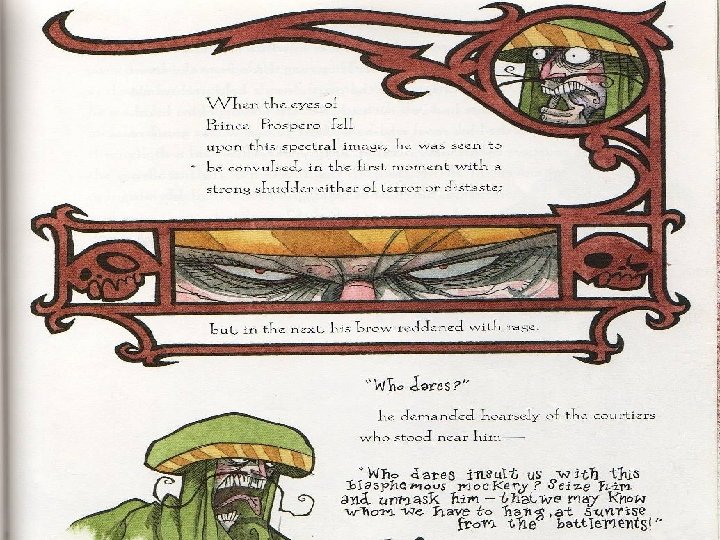 When the eyes of
Prince Prospero fell
upon this spectral image, he was seen to
be convulsed, in the first moment with a
strong shudder either of terror or distaste;
but in the next his brow reddened with rage.
"Who dares?"
he demanded hoarsely of the courtiers
who stood near him—
"Who dares insult us with this
blasphemous mockery? Seize him
and unmask him — that we may know
whom we have to hang, at sunrise
from the battlements!"